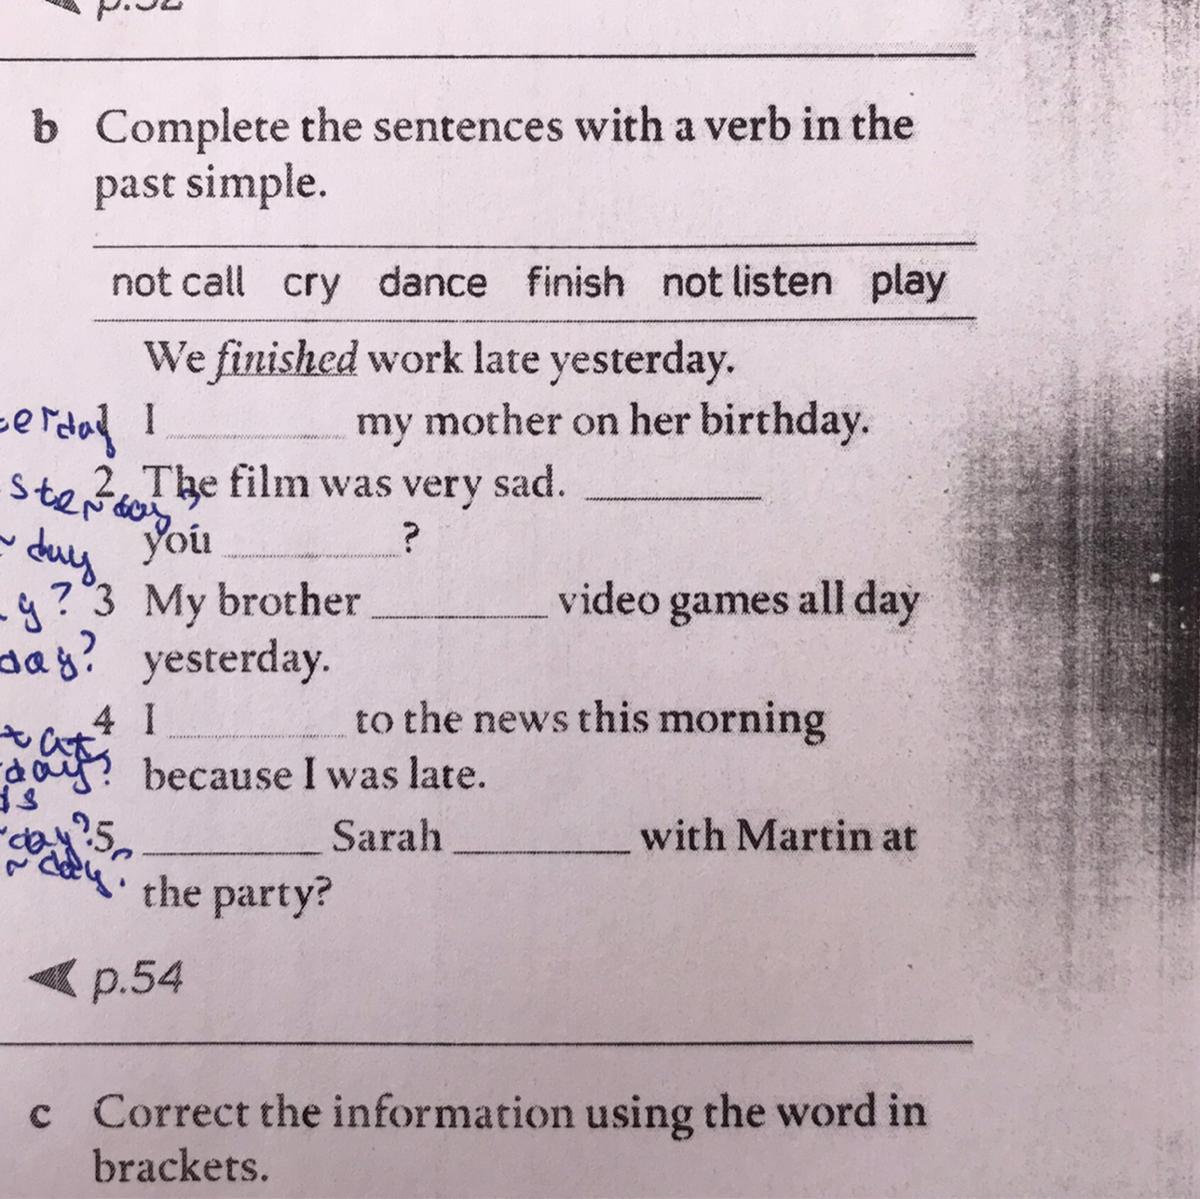 b Complete the sentences with a verb in the
past simple.
not call cry dance finish not listen play
We finished work late yesterday.
1 I ______ my mother on her birthday.
2 The film was very sad. ______
you ______ ?
day
3 My brother ______ video games all day
day? yesterday.
4 I ______ to the news this morning
because I was late.
5 ______ Sarah ______ with Martin at
the party?
p.54
c Correct the information using the word in
brackets.